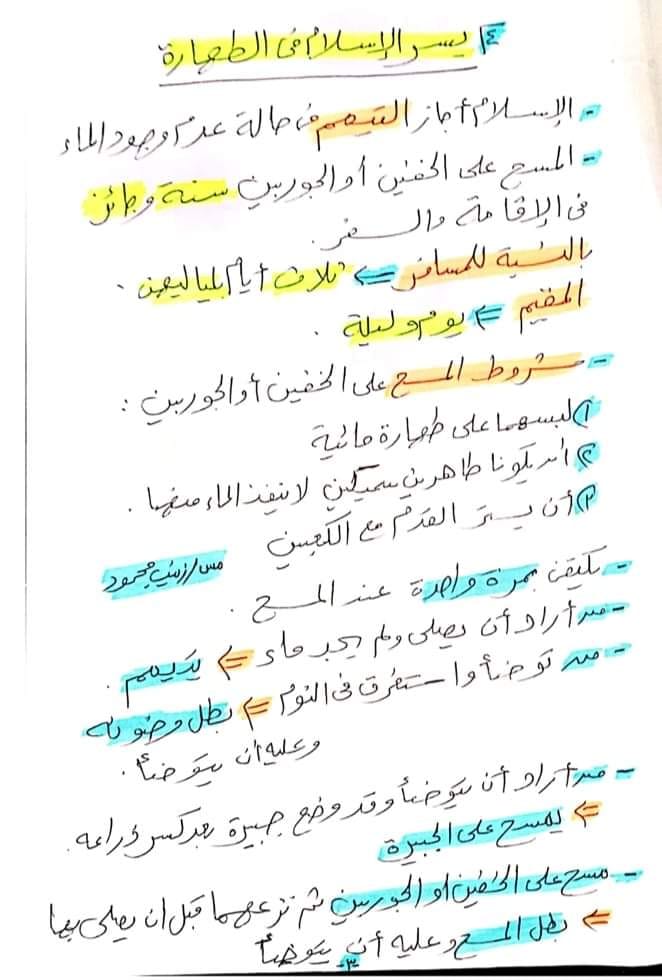 ٤ يسر الإسلام في الطهارة
- الإسلام أجاز التيمم في حالة عدم وجود الماء
- المسح على الخفين أو الجوربين سنة وجائز
في الإقامة والسفر.
بالنسبة للمسافر ⇐ ثلاث أيام بلياليهن.
المقيم ⇐ يوم وليلة.
- شروط المسح على الخفين أو الجوربين:
١ لبسهما على طهارة مائية
٢ أن يكونا طاهرين سميكين لا ينفذ الماء منهما.
٣ أن يستر القدم مع الكعبين
مس/زينب محمود
- يكتفى بمرة واحدة عند المسح.
- من أراد أن يصلى ولم يجد ماء ⇐ يتيمم.
- من توضأ واستغرق في النوم ⇐ بطل وضوئه
وعليه أن يتوضأ.
- من أراد أن يتوضأ وقد وضع جبيرة بعد كسر ذراعه.
⇐ يمسح على الجبيرة
- مسح على الخفين أو الجوربين ثم نزعهما قبل أن يصلى بها
⇐ بطل المسح وعليه أن يتوضأ
-٣-